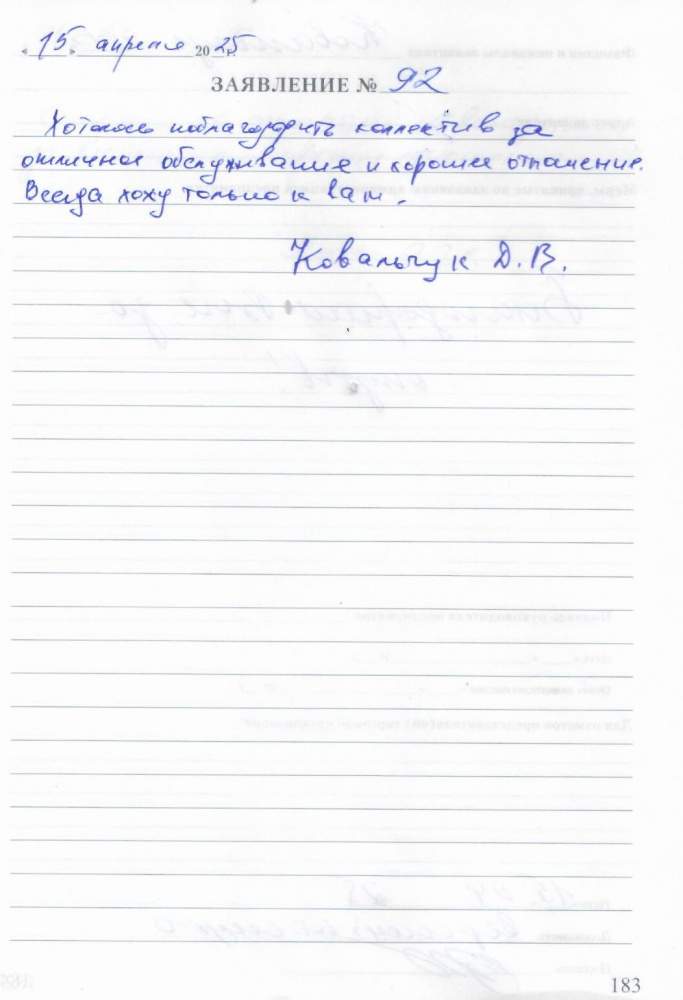 « 15 » апреля 2025
ЗАЯВЛЕНИЕ № 92
Хотелось поблагодарить коллектив за
отличное обслуживание и хорошее отношение.
Всегда хожу только к вам.
Ковальчук Д.В.
183